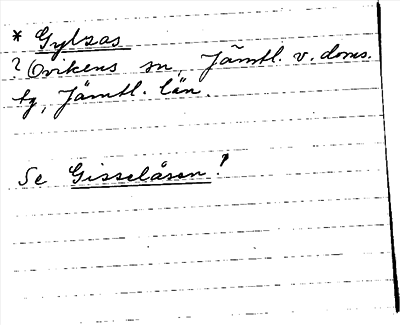 * Gylsas
? Ovikens sn, Jämtl. v. doms.
tg, Jämtl. län.
Se Gisselåsen?